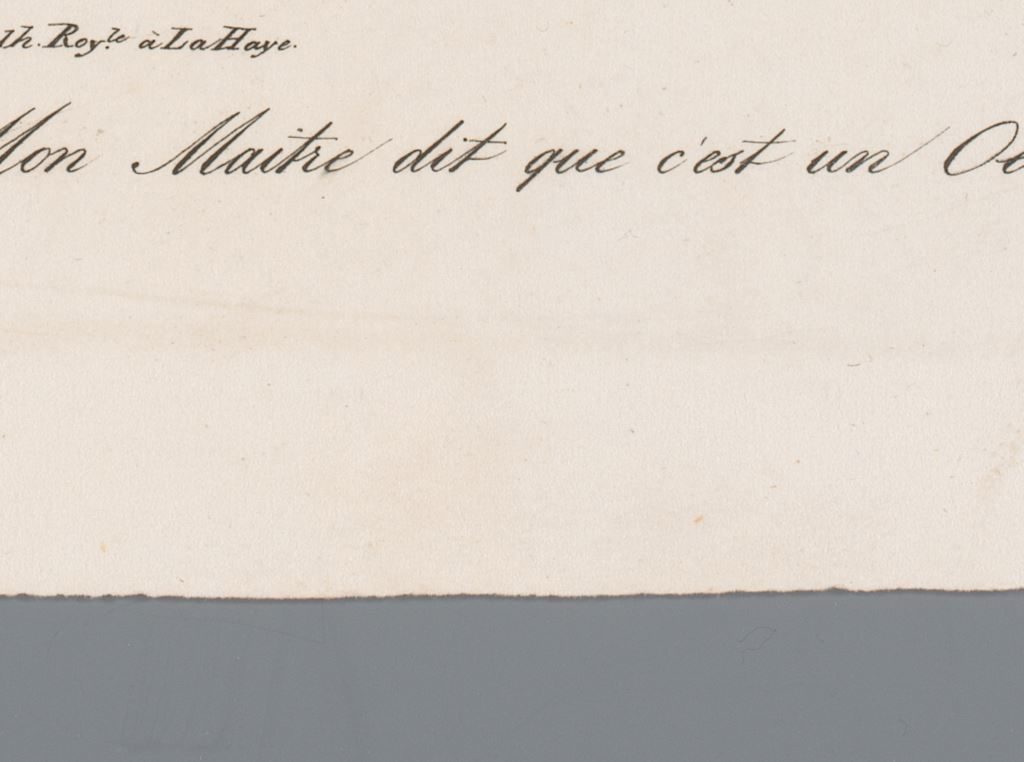 lh. Roy.le à La Haye.
Mon Maitre dit que c'est un